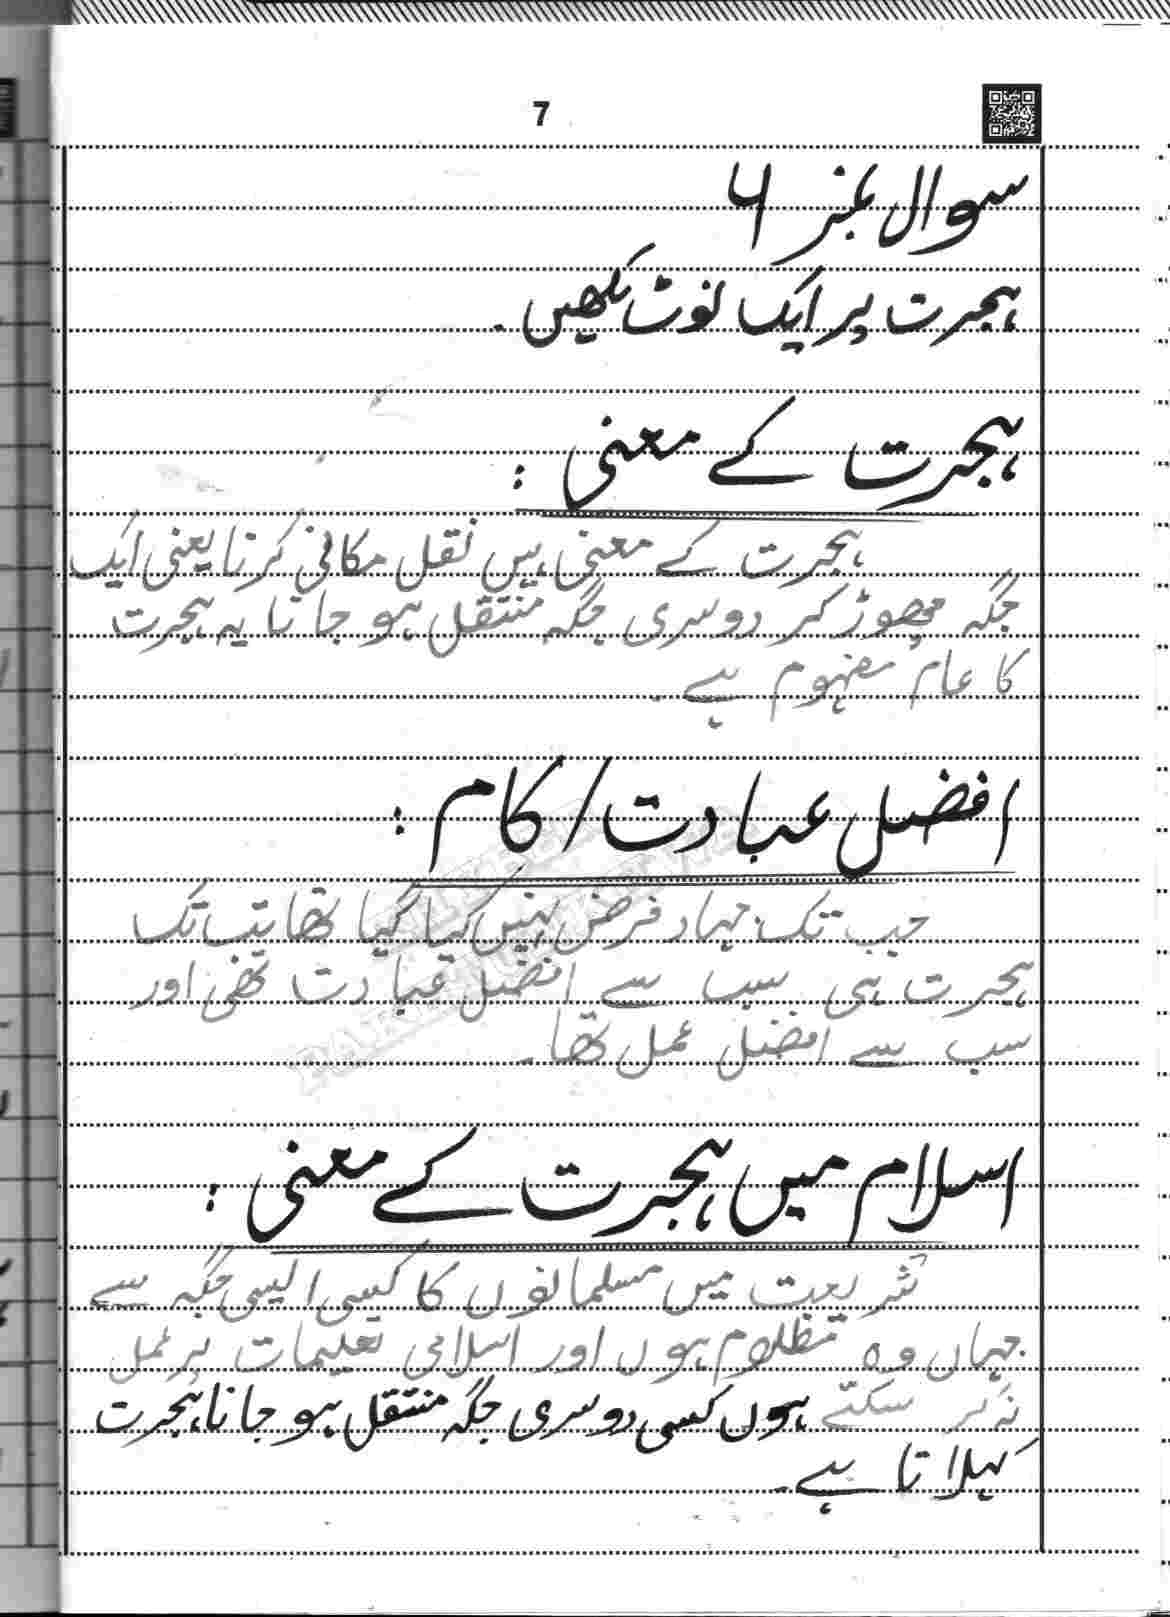 7
سوال نمبر ۶
ہجرت پر ایک نوٹ لکھیں۔
ہجرت کے معنی :
ہجرت کے معنی ہیں نقل مکانی کرنا یعنی ایک
جگہ چھوڑ کر دوسری جگہ منتقل ہو جانا یہ ہجرت
کا عام مفہوم ہے۔
افضل عبادت/کام :
جب تک جہاد فرض نہیں کیا گیا تھا تب تک
ہجرت ہی سب سے افضل عبادت تھی اور
سب سے افضل عمل تھا۔
اسلام میں ہجرت کے معنی :
شریعت میں مسلمانوں کا کسی ایسی جگہ سے
جہاں وہ مظلوم ہوں اور اسلامی تعلیمات پر عمل
نہ کر سکتے ہوں کسی دوسری جگہ منتقل ہو جانا ہجرت
کہلاتا ہے۔